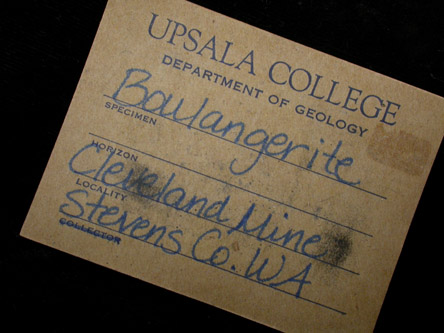 UPSALA COLLEGE
DEPARTMENT OF GEOLOGY
Boulangerite
SPECIMEN
HORIZON
Cleveland Mine
LOCALITY
Stevens Co. WA
COLLECTOR